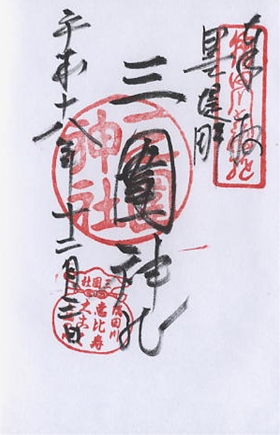 奉拝
墨堤
三圍神社
平成十八年十二月三日
神社
三囲社
隅田川
恵比寿